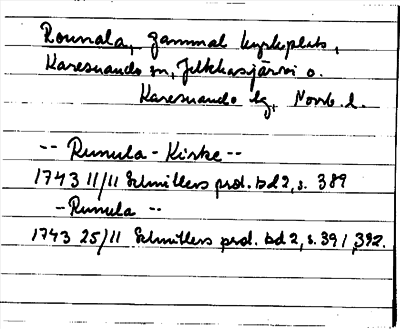 Rounala, gammal kyrkplats,
Karesuando sn, Jukkasjärvi o.
Karesuando tg, Norrb. l.
-- Runula - Kirke --
1743 11/11 Schnitlers prot. bd 2, s. 389
- Runula --
1743 25/11 Schnitlers prot. bd 2, s. 391, 392.